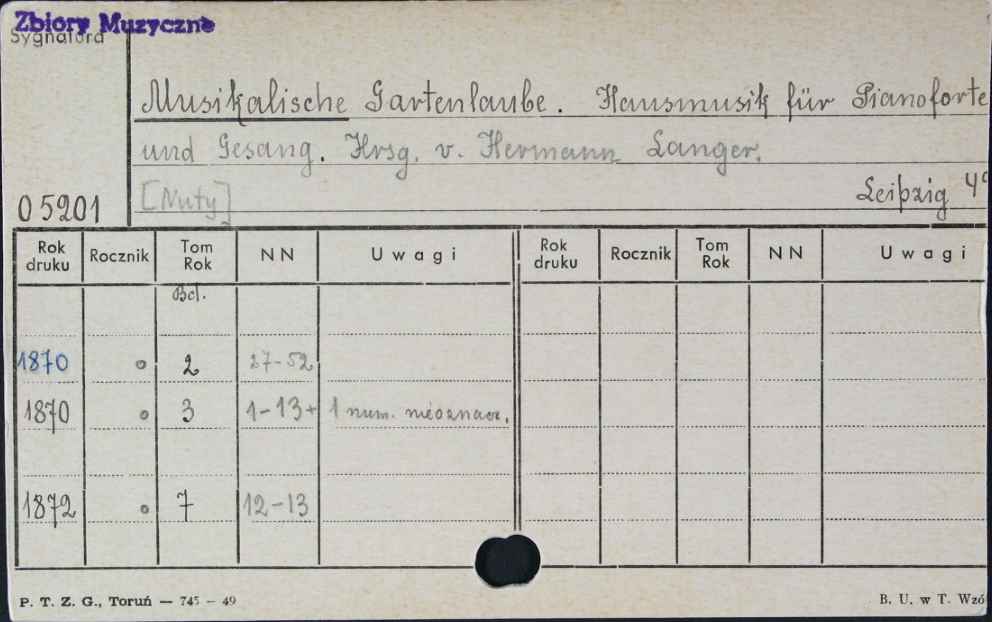 Zbiory Muzyczne
Sygnatura
Musikalische Gartenlaube. Hausmusik für Pianoforte
und Gesang. Hrsg. v. Hermann Langer.
[Nuty]
Leipzig 4°
05201
Rok druku Rocznik Tom Rok NN Uwagi Rok druku Rocznik Tom Rok NN Uwagi
Bd.
1870 o 2 27-52
1870 o 3 1-13+ 1 num. nieoznacz.
1872 o 7 12-13
P. T. Z. G., Toruń — 745 — 49
B. U. w T. Wzó